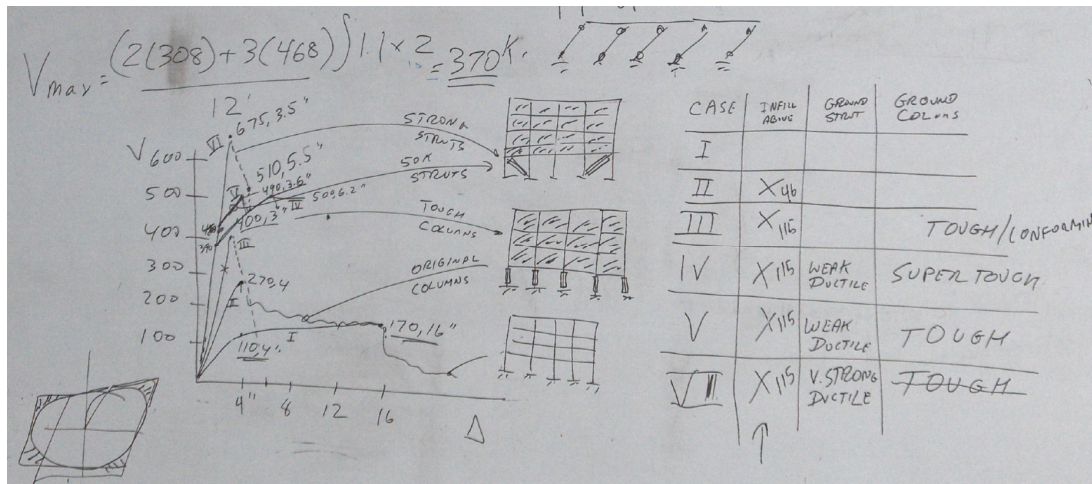 Vmax = (2(308) + 3(468)) 1.1 x 2 = 370K.
12'
V
600
500
400
300
200
100
4" 8 12 16
Δ
VI 675, 3.5"
V 510, 5.5"
490, 3.6"
IV 509, 6.2"
400, 3"
III
390
270, 4
I
I
110, 4"
170, 16"
STRONG
STRUTS
50K
STRUTS
TOUGH
COLUMNS
ORIGINAL
COLUMNS
CASE INFILL ABOVE GROUND STRUT GROUND COLUMNS
I
II X46
III X115 TOUGH/CONFORMIN
IV X115 WEAK DUCTILE SUPER TOUGH
V X115 WEAK DUCTILE TOUGH
VI X115 V. STRONG DUCTILE TOUGH